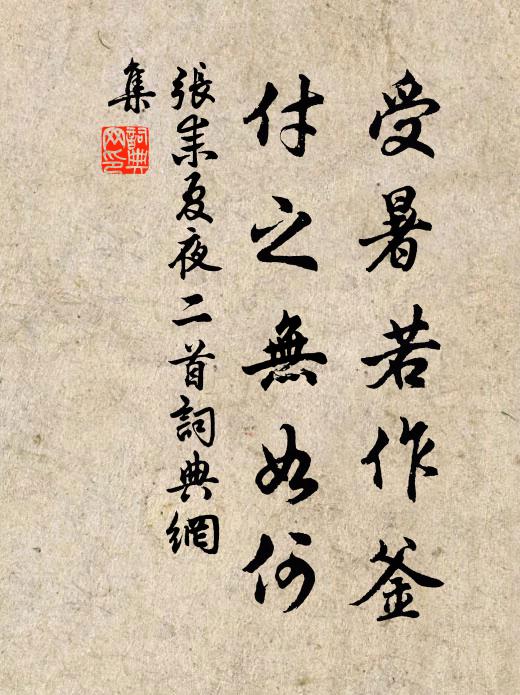 受暑若作釜
付之無如何
張耒夏夜二首詞典網
集
詞典
网印